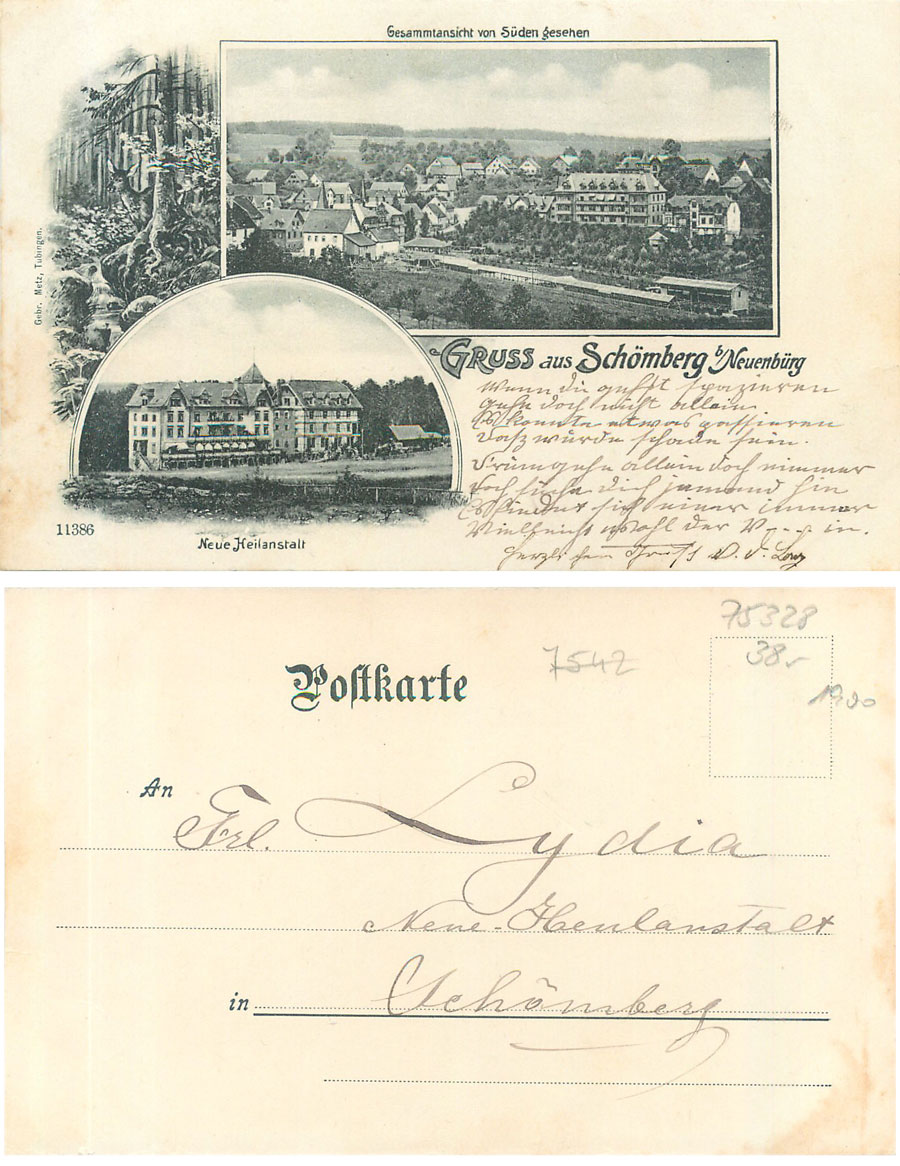 Gesammtansicht von Süden gesehen
Gebr. Metz, Tübingen.
GRUSS aus Schömberg b/Neuenbürg
Wenn du gehst spazieren
Gehe doch nicht allein
Es könnte etwas passieren
Dasz würde schade sein.
Drum gehe allein doch nimmer
Doch suche dich jemand hin
Es findet sich einer immer
Vielleicht wohl der V--- in.
Herzlichen Gruss
11386
Neue Heilanstalt
75328
7542
38.-
1900
Postkarte
An
Frl. Lydia
Neue-Heilanstalt
in Schömberg